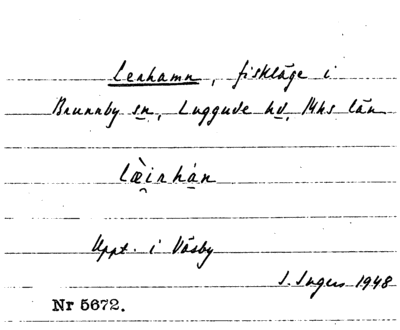 Lerhamn, fiskläge i
Brunnby sn, Luggude hd, Mhs län
læ̀i̯rhàn
Uppt. i Väsby
I. Ingers 1948
Nr 5672.